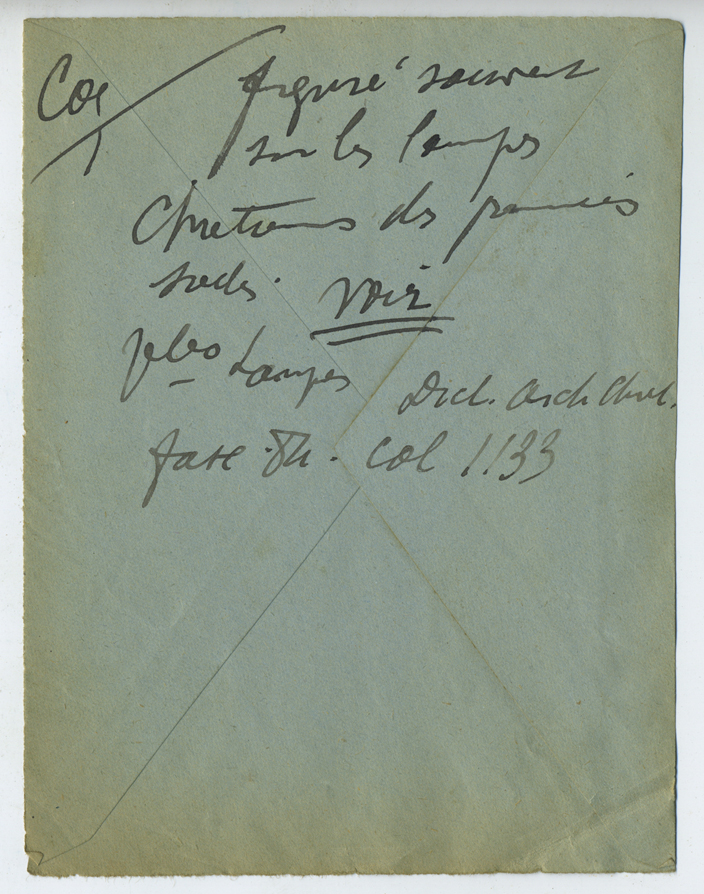 Coq figuré souvent
sur les lampes
Chretiennes des premiers
siecles. voir
Lampes Dict. Arch Chret.
fasc 84. col 1133